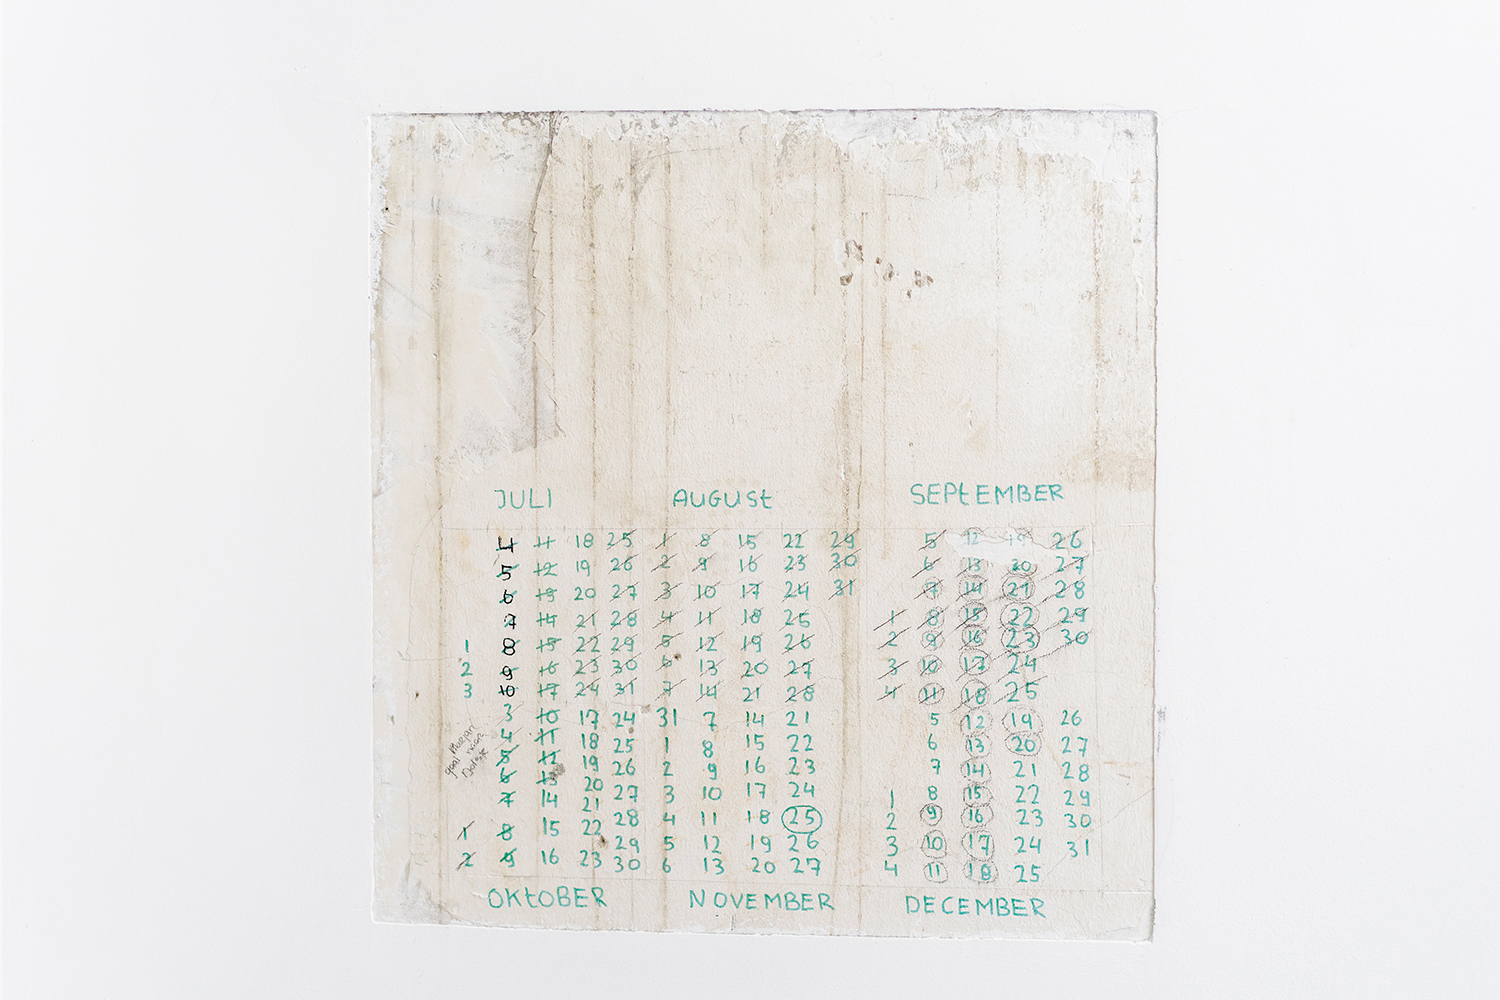 JULI AUGUST SEPTEMBER
4 11 18 25 1 8 15 22 29 5 12 19 26
5 12 19 26 2 9 16 23 30 6 13 20 27
6 13 20 27 3 10 17 24 31 7 14 21 28
7 14 21 28 4 11 18 25 1 8 15 22 29
1 8 15 22 29 5 12 19 26 2 9 16 23 30
2 9 16 23 30 6 13 20 27 3 10 17 24
3 10 17 24 31 7 14 21 28 4 11 18 25
3 10 17 24 31 7 14 21 5 12 19 26
4 11 18 25 1 8 15 22 6 13 20 27
5 12 19 26 2 9 16 23 7 14 21 28
6 13 20 27 3 10 17 24 1 8 15 22 29
7 14 21 28 4 11 18 25 2 9 16 23 30
1 8 15 22 29 5 12 19 26 3 10 17 24 31
2 9 16 23 30 6 13 20 27 4 11 18 25
OKTOBER NOVEMBER DECEMBER